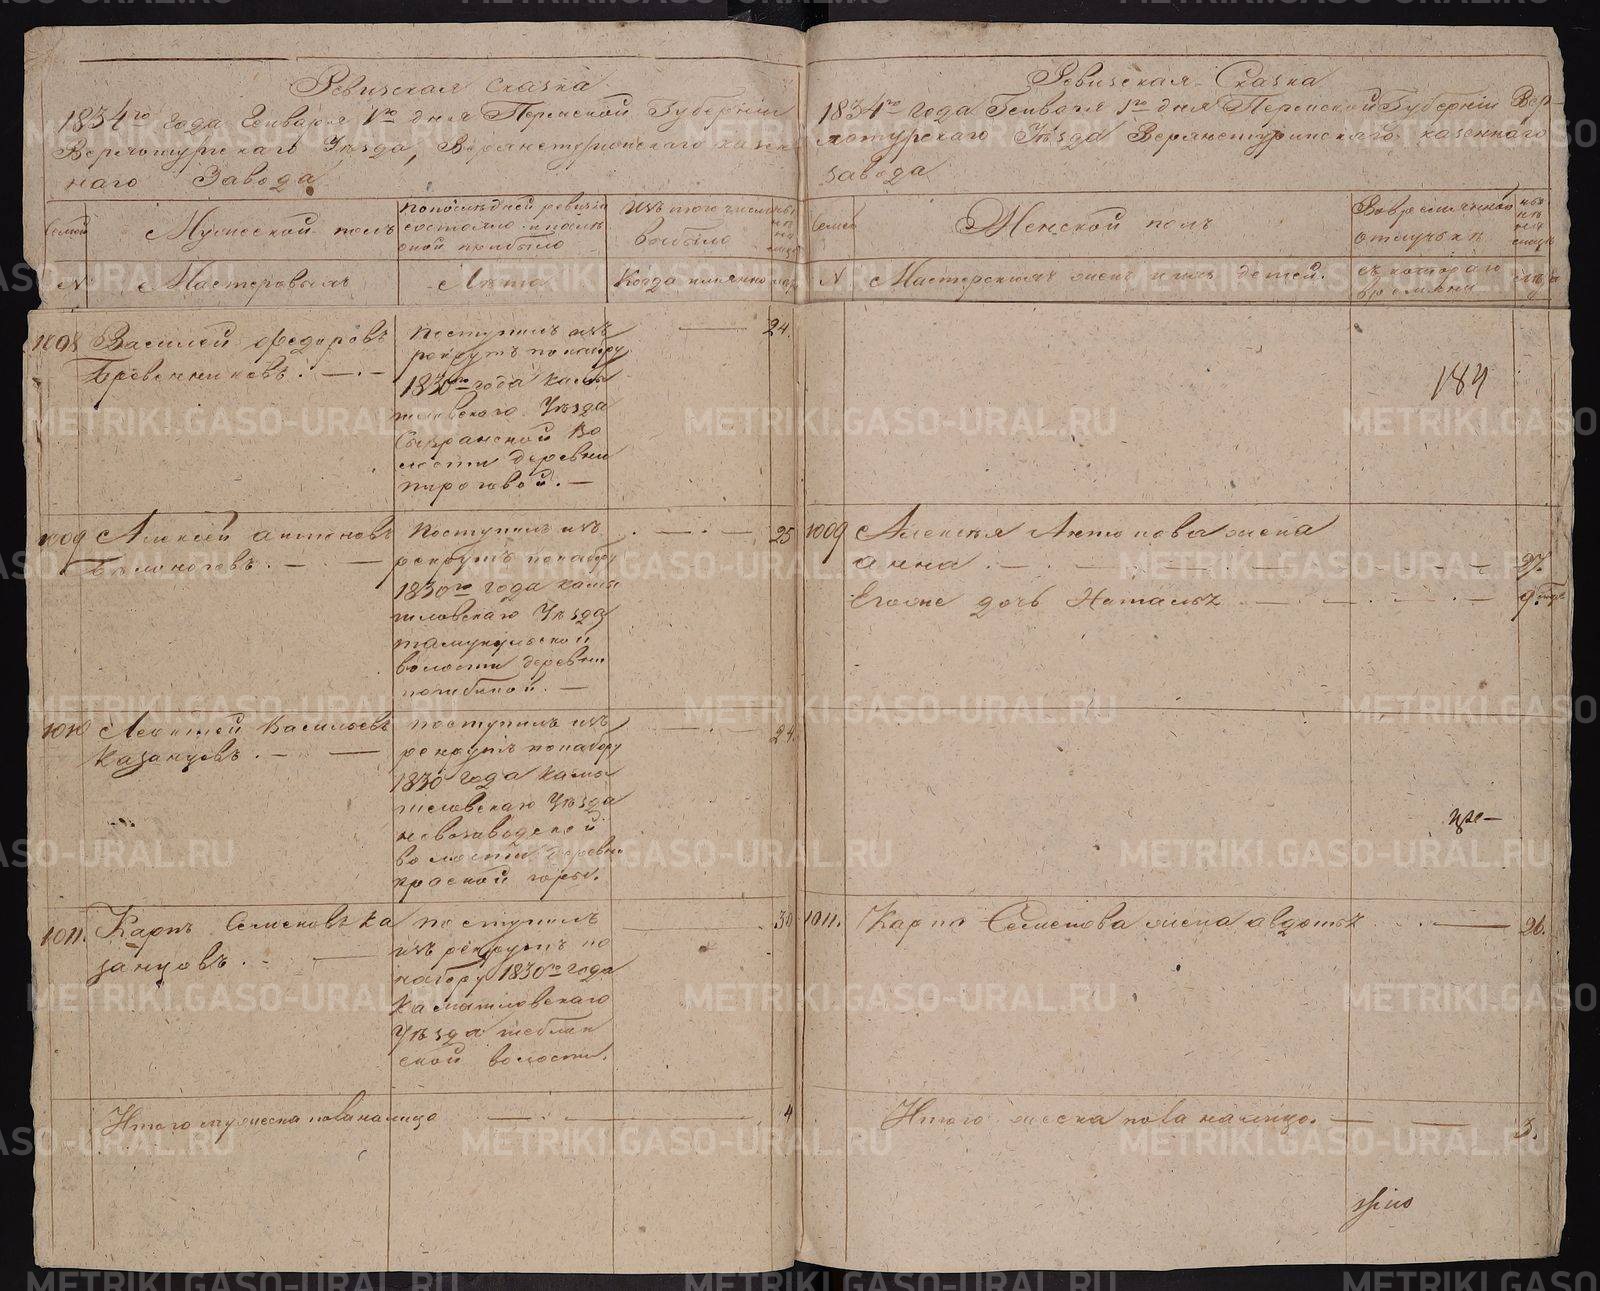 Ревизская Сказка
1834го года Генваря 1го дня Пермской Губернии
Верхотурскаго Уѣзда, Верхнетуринскаго казен
наго Завода
Семей
Мужеской полъ
По последней ревизіи
состояло и после
оной прибыло
Изъ того числа
выбыло
№
Мастеровыхъ
Лѣта
Когда имянно
лѣта
1008
Василей Федоровъ
Бревенниковъ. — . —
Поступилъ изъ
рекрутъ по набору
1830го года Камы
шловскаго Уѣзда
волости деревни
Пироговой. —
24.
1009
Алексей Антоновъ
Бѣлоноговъ. — . —
Поступилъ изъ
рекрутъ по набору
1830го года камы
шловскаго Уѣзда
волости деревни
25
1010
Леонтей Васильевъ
Казанцовъ. — —
поступилъ изъ
рекрутъ по набору
1830 года камы
шловскаго Уѣзда
новозаводской
волости деревни
красной горы.
24.
1011.
Карпъ Семеновъ Ка
занцовъ. — —
поступилъ
изъ рекрутъ по
набору 1830го года
Уѣзда
ской волости.
30
Итого мужеска пола на лицо
4
Ревизская Сказка
1834го года Генваря 1го дня Пермской Губернии Вер-
хотурскаго Уѣзда Верхнетуринскаго казеннаго
завода
Семей
Женской полъ
Во временной
отлучкѣ
№
Мастерскихъ жены и ихъ детей.
съ котораго
времяни
лѣта
184
1009
Алексѣя Антонова жена
анна
27.
Его дочь Наталья
9.
1011.
Карпа Семенова жена авдотья
26.
Итого женска пола на лицо. —
3.